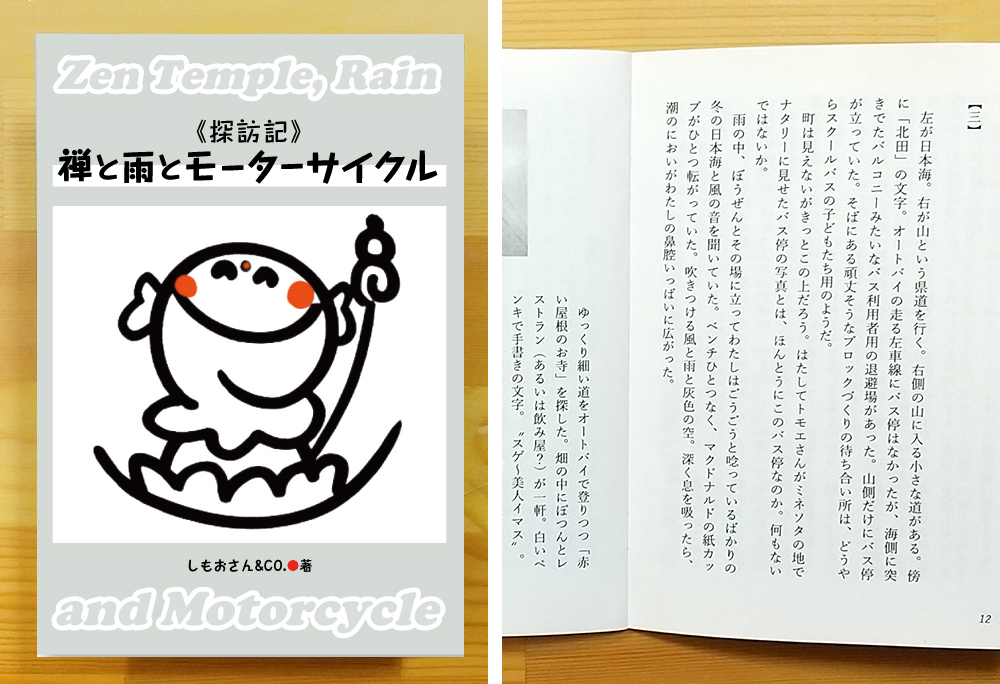 Zen Temple, Rain
《探訪記》
禅と雨とモーターサイクル
しもおさん&CO.●著
and Motorcycle
【三】
左が日本海。右が山という県道を行く。右側の山に入る小さな道がある。傍
に「北田」の文字。オートバイの走る左車線にバス停はなかったが、海側に突
きでたバルコニーみたいなバス利用者用の退避場があった。山側だけにバス停
が立っていた。そばにある頑丈そうなブロックづくりの待ち合い所は、どうや
らスクールバスの子どもたち用のようだ。
町は見えないがきっとこの上だろう。はたしてトモエさんがミネソタの地で
ナタリーに見せたバス停の写真とは、ほんとうにこのバス停なのか。何もない
ではないか。
雨の中、ぼうぜんとその場に立ってわたしはごうごうと唸っているばかりの
冬の日本海と風の音を聞いていた。ベンチひとつなく、マクドナルドの紙カッ
プがひとつ転がっていた。吹きつける風と雨と灰色の空。深く息を吸ったら、
潮のにおいがわたしの鼻腔いっぱいに広がった。
12
ゆっくり細い道をオートバイで登りつつ「赤
い屋根のお寺」を探した。畑の中にぽつんとレ
ストラン(あるいは飲み屋?)が一軒。白いペ
ンキで手書きの文字。〝スゲ〜美人イマス〟。